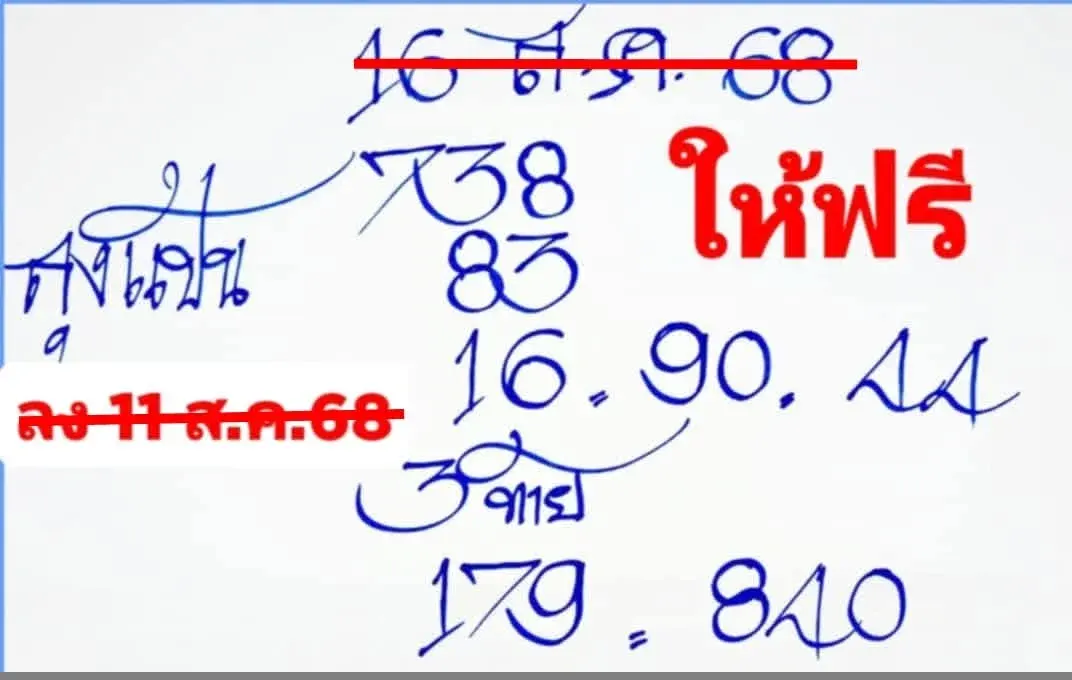 16 ส.ค. 68
738
ให้ฟรี
ลุงแป้น
83
16 = 90. 44
ลง 11 ส.ค.68
3 ท้าย
179 = 840